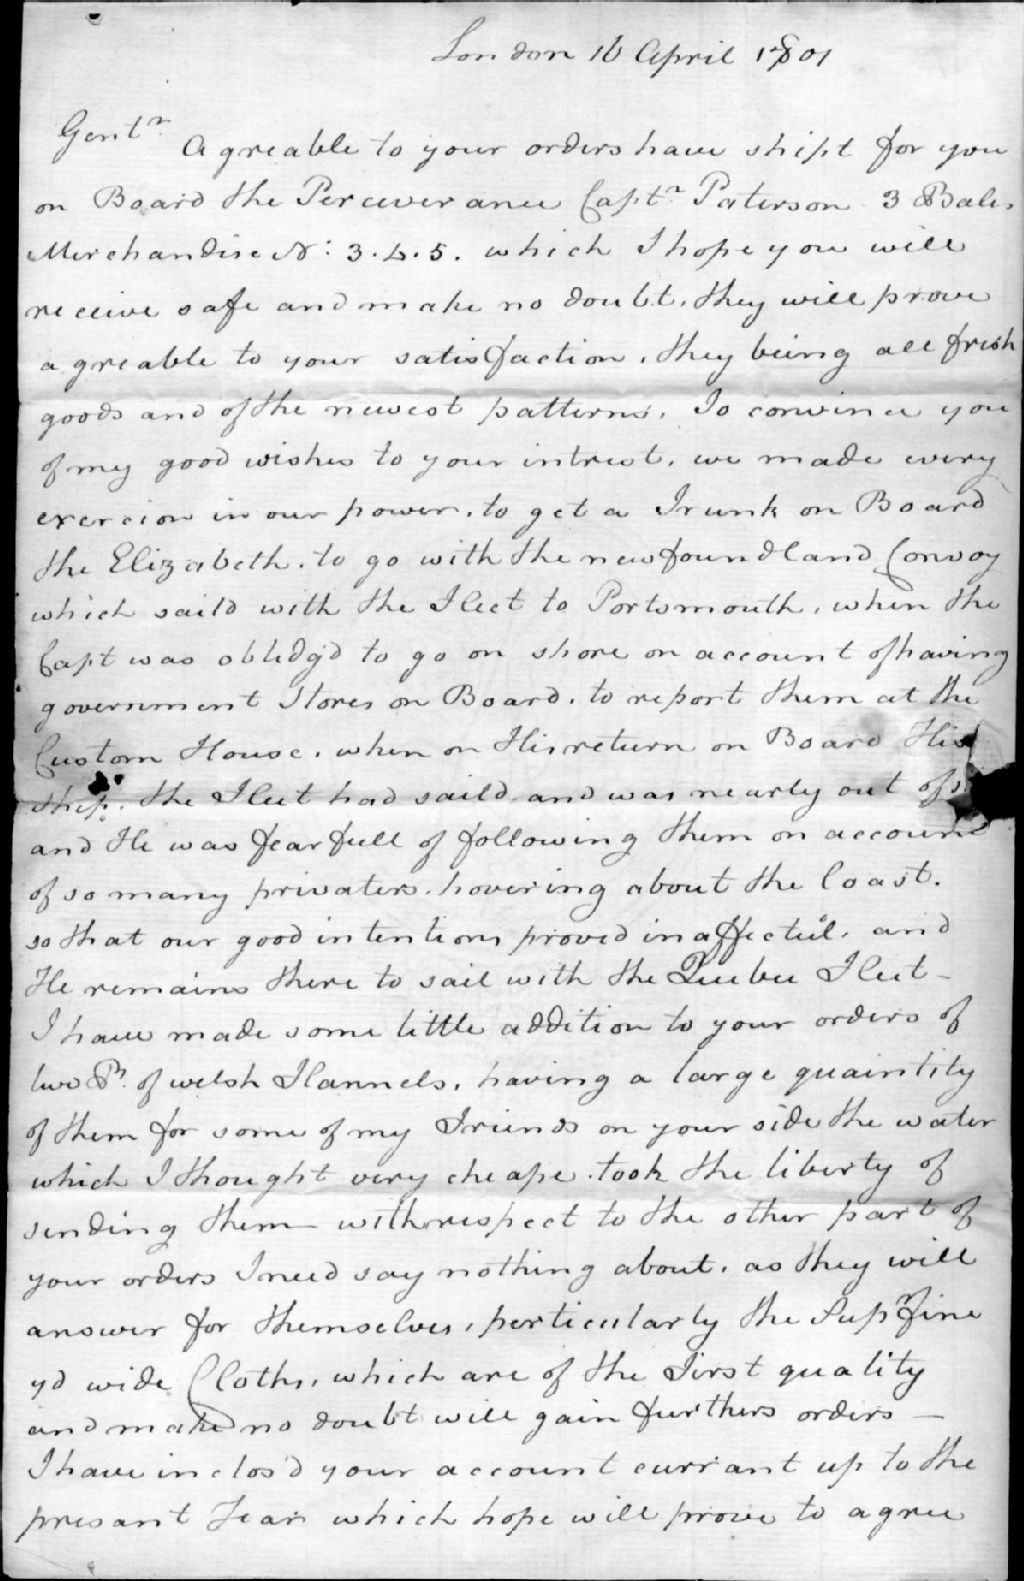 London 16 April 1801
Gentn
Agreable to your orders have shipt for you
on Board the Perceverance Captn Paterson 3 Bales
Merchandise No: 3.4.5. which I hope you will
receive safe and make no doubt, they will prove
agreable to your satisfaction, they being all fresh
goods and of the newest patterns. To convince you
of my good wishes to your intrest. we made every
exercion in our power, to get a Trunk on Board
the Elizabeth. to go with the newfoundland Convoy
which saild with the Fleet to Portsmouth, when the
Capt was oblidg'd to go on shore on account of having
government Stores on Board, to report them at the
Custom House, when on His return on Board His
ship. the Fleet had saild and was nearly out of
and He was fearfull of following them on account
of so many privaters hovering about the Coast.
so that our good intentions proved inaffectul. and
He remains there to sail with the Quebec Fleet —
I have made some little addition to your orders of
two Ps. of welsh Flannels, having a large quaintity
of them for some of my Friends on your side the water
which I thought very cheape. took the liberty of
sending them — with respect to the other part of
your orders I need say nothing about, as they will
answer for themselves, perticularly the Supr fine
yd wide Cloths, which are of the First quality
and make no doubt will gain furthers orders —
I have inclos'd your account currant up to the
presant Year which hope will prove to agree